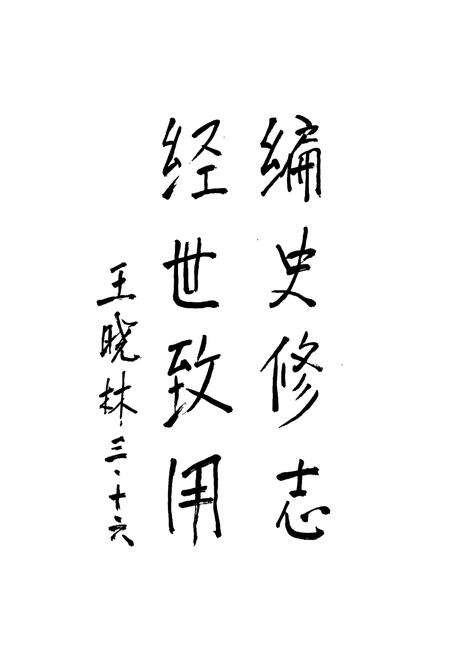 编史修志
经世致用
王晓林 三·十六